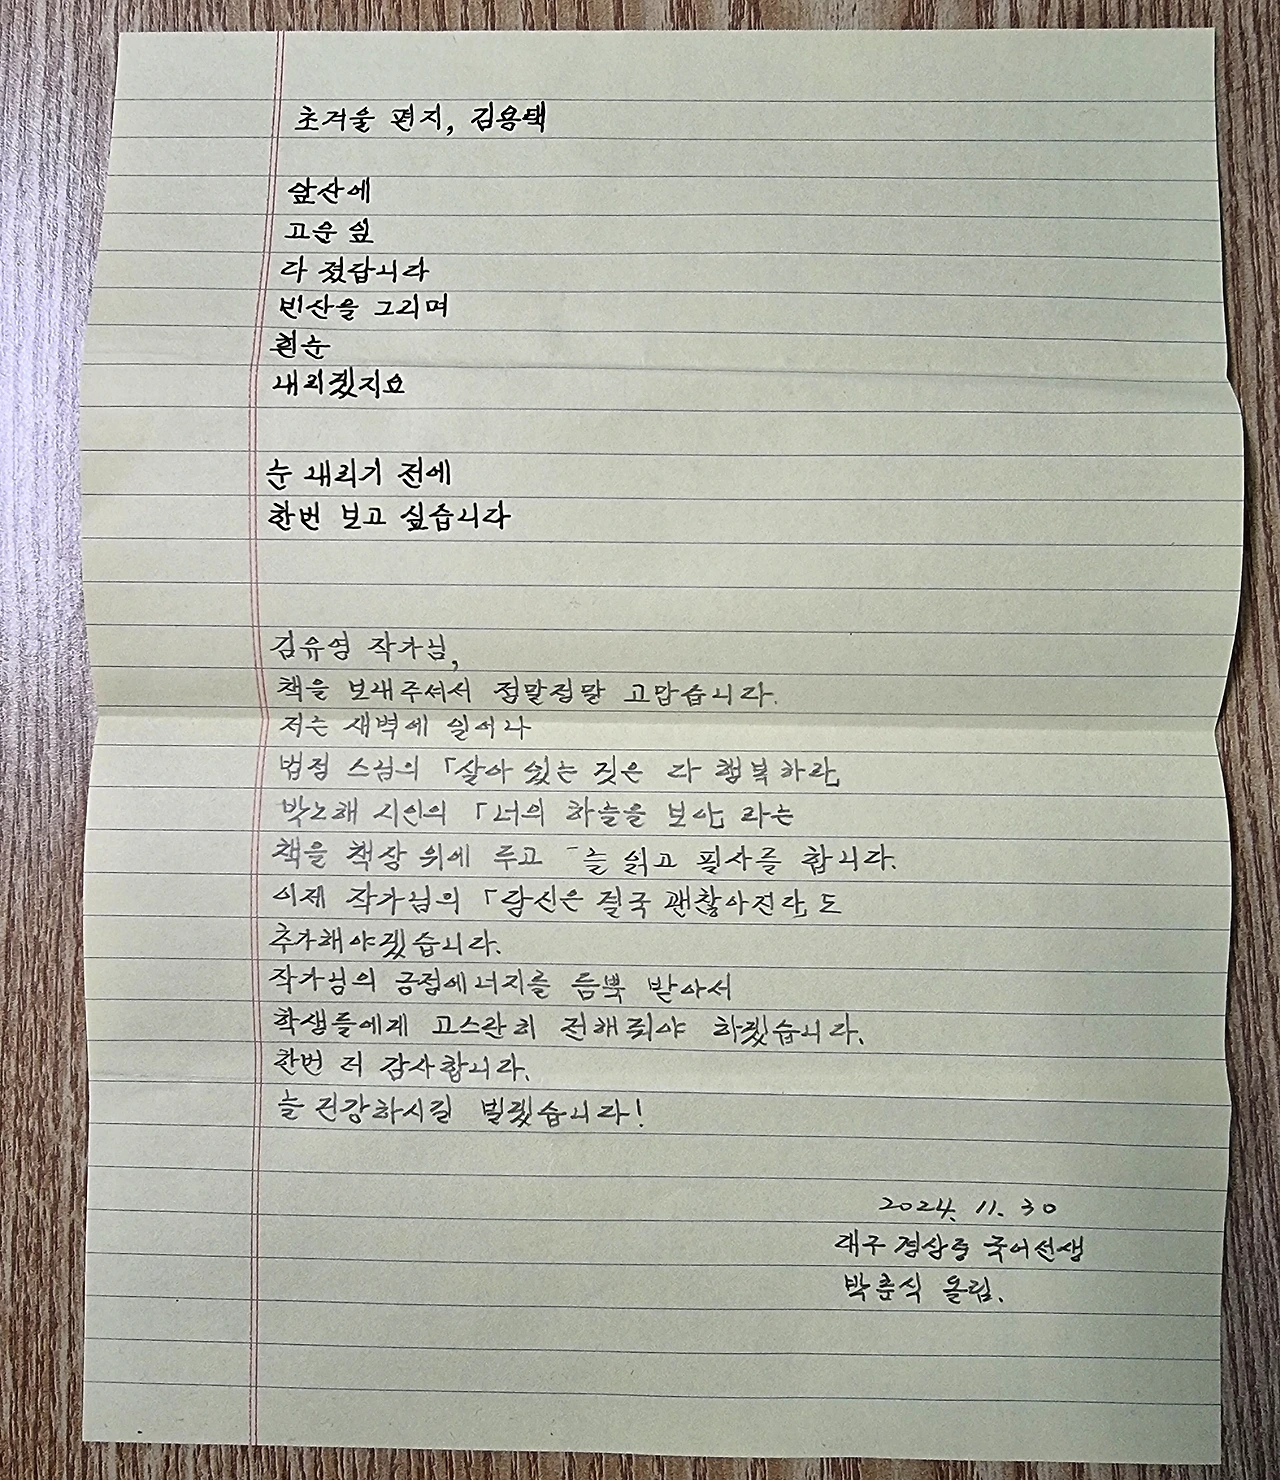 초겨울 편지, 김용택
앞산에
고운 잎
다 졌답니다
빈산을 그리며
흰눈
내리겠지요
눈 내리기 전에
한번 보고 싶습니다
김유영 작가님,
책을 보내주셔서 정말정말 고맙습니다.
저는 새벽에 일어나
법정 스님의 「살아 있는 것은 다 행복하라」
박노해 시인의 「너의 하늘을 보아」 라는
책을 책상 위에 두고 늘 읽고 필사를 합니다.
이제 작가님의 「당신은 결국 괜찮아진다」도
추가해야겠습니다.
작가님의 긍정에너지를 듬뿍 받아서
학생들에게 고스란히 전해줘야 하겠습니다.
한번 더 감사합니다.
늘 건강하시길 빌겠습니다!
2024. 11. 30
대구 경상중 국어선생
박춘식 올림.